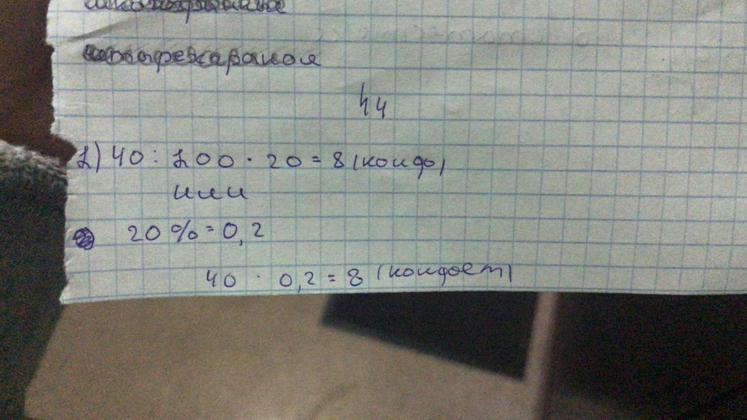 44
1) 40 : 100 · 20 = 8 (конф)
или
20 % = 0,2
40 · 0,2 = 8 (конфет)